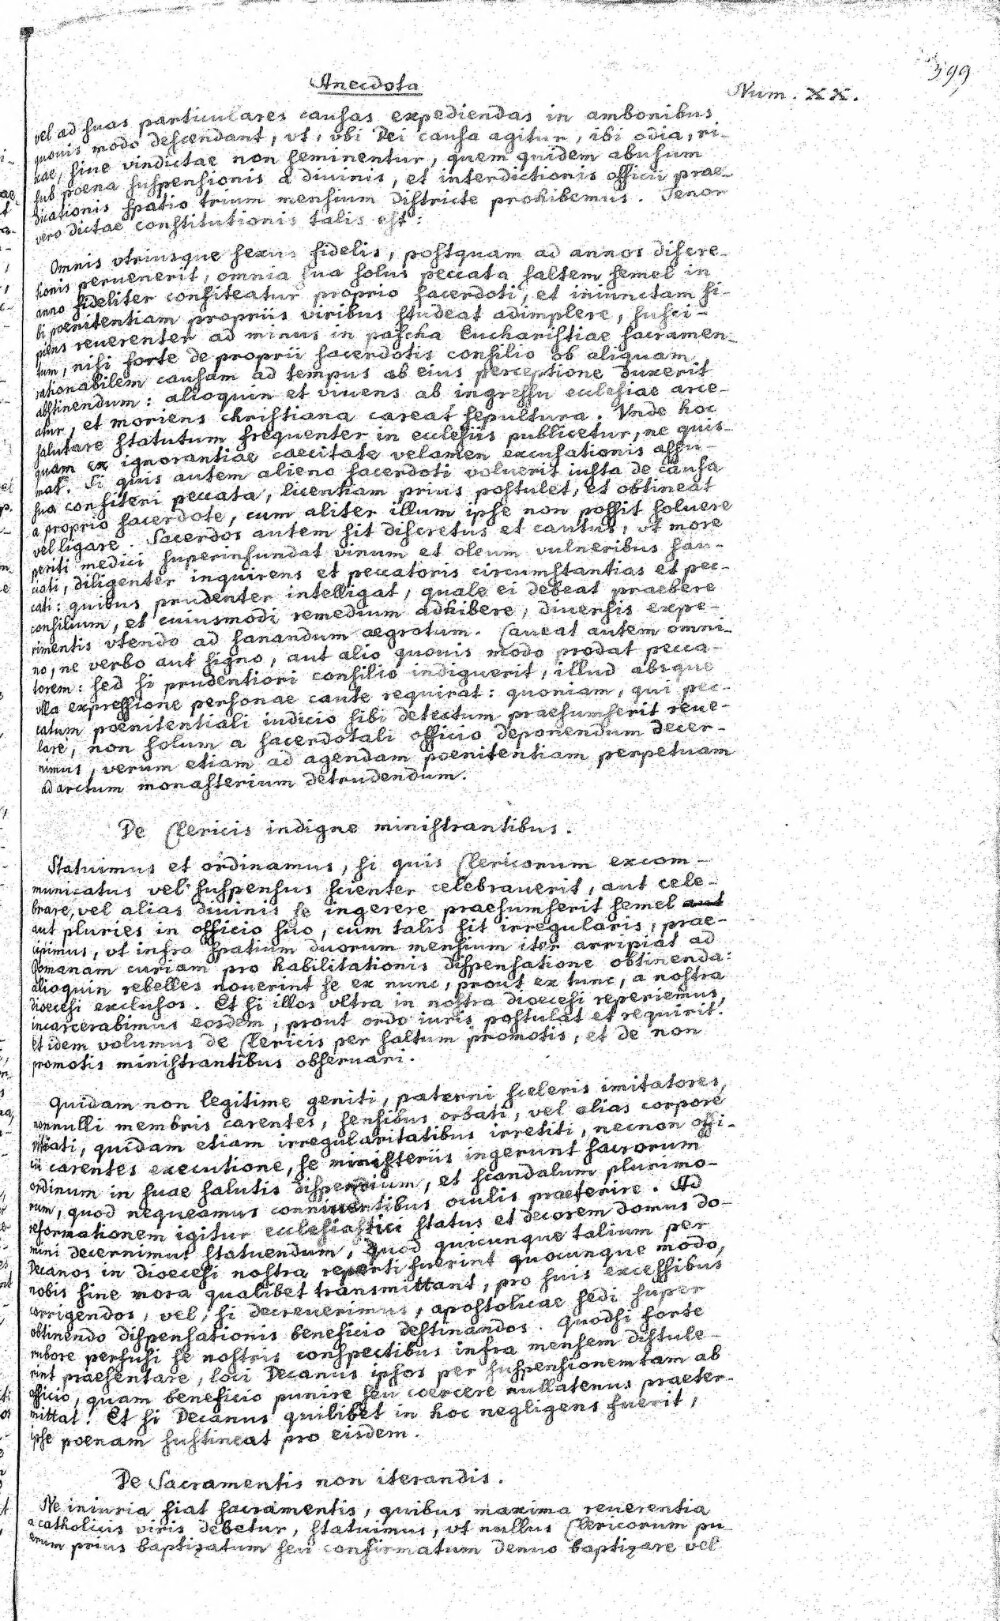 399
Anecdota
Num. XX.
vel ad suas particulares causas expediendas in ambonibus
quovis modo descendant, vt, vbi Dei causa agitur, ibi odia, ri-
xae, sive vindictae non seminentur, quem quidem abusum
sub poena suspensionis a divinis, et interdictionis officii prae-
dicationis spatio trium mensium districte prohibemus. Tenor
vero dictae constitutionis talis est:
Omnis vtriusque sexus fidelis, postquam ad annos discre-
tionis pervenerit, omnia sua solus peccata saltem semel in
anno fideliter confiteatur proprio sacerdoti, et iniunctam si-
bi poenitentiam propriis viribus studeat adimplere, susci-
piens reuerenter ad minus in pascha Eucharistiae sacramen-
tum, nisi forte de proprii sacerdotis consilio ob aliquam
rationabilem causam ad tempus ab eius perceptione duxerit
abstinendum: alioquin et vivens ab ingressu ecclesiae arce-
atur, et moriens christiana careat sepultura. Vnde hoc
salutare statutum frequenter in ecclesiis publicetur, ne quis-
quam ex ignorantiae caecitate velamen excusationis assu-
mat. Si quis autem alieno sacerdoti voluerit iusta de causa
sua confiteri peccata, licentiam prius postulet, et obtineat
a proprio sacerdote, cum aliter illum ipse non possit soluere
vel ligare. Sacerdos autem sit discretus et cautus, vt more
periti medici superinfundat vinum et oleum vulneribus sau-
ciati, diligenter inquirens et peccatoris circumstantias et pec-
cati: quibus prudenter intelligat, quale ei debeat praebere
consilium, et cuiusmodi remedium adhibere, diuersis expe-
rimentis vtendo ad sanandum aegrotum. Caueat autem omni-
no, ne verbo aut signo, aut alio quouis modo prodat pecca-
torem: sed si prudentiori consilio indiguerit, illud absque
vlla expressione personae caute requirat: quoniam, qui pec-
catum poenitentiali iudicio sibi detectum praesumserit reue-
lare, non solum a sacerdotali officio deponendum decer-
nimus, verum etiam ad agendam poenitentiam perpetuam
ad arctum monasterium detrudendum.
De Clericis indigne ministrantibus.
Statuimus et ordinamus, si quis Clericorum excom-
municatus vel suspensus scienter celebrauerit, aut cele-
brare, vel alias divinis se ingerere praesumserit semel aut
aut pluries in officio suo, cum talis sit irregularis, prae-
cipimus, vt infra spatium duorum mensium iter arripiat ad
Romanam curiam pro habilitationis dispensatione obtinenda:
alioquin rebelles nouerint se ex nunc, prout ex tunc, a nostra
dioecesi exclusos. Et si illos vltra in nostra dioecesi reperiemus,
incarcerabimus eosdem, prout ordo iuris postulat et requirit.
Et idem volumus de Clericis per saltum promotis, et de non
promotis ministrantibus obseruari.
Quidam non legitime geniti, paterni sceleris imitatores,
nonnulli membris carentes, sensibus orbati, vel alias corpore
vitiati, quidam etiam irregularitatibus irretiti, necnon offi-
cii carentes executione, se ministeriis ingerunt sacrorum
ordinum in suae salutis dispendium, et scandalum plurimo-
rum, quod nequeamus conniventibus oculis praeterire. Ad
reformationem igitur ecclesiastici status et decorem domus do-
mini decernimus statuendum, quod quicunque talium per
Decanos in dioecesi nostra reperti fuerint quocunque modo,
nobis sine mora qualibet transmittant, pro suis excessibus
corrigendos, vel, si decreuerimus, apostolicae sedi super
obtinendo dispensationis beneficio destinandos. Quodsi forte
rubore perfusi se nostris conspectibus infra mensem distule-
rint praesentare, loci Decanus ipsos per suspensionem tam ab
officio, quam beneficio punire seu coercere nullatenus praeter-
mittat. Et si Decanus quilibet in hoc negligens fuerit,
ipse poenam sustineat pro eisdem.
De Sacramentis non iterandis.
Ne iniuria fiat sacramentis, quibus maxima reuerentia
a catholicis viris debetur, statuimus, vt nullus Clericorum pu-
erum prius baptizatum seu confirmatum denuo baptizare vel